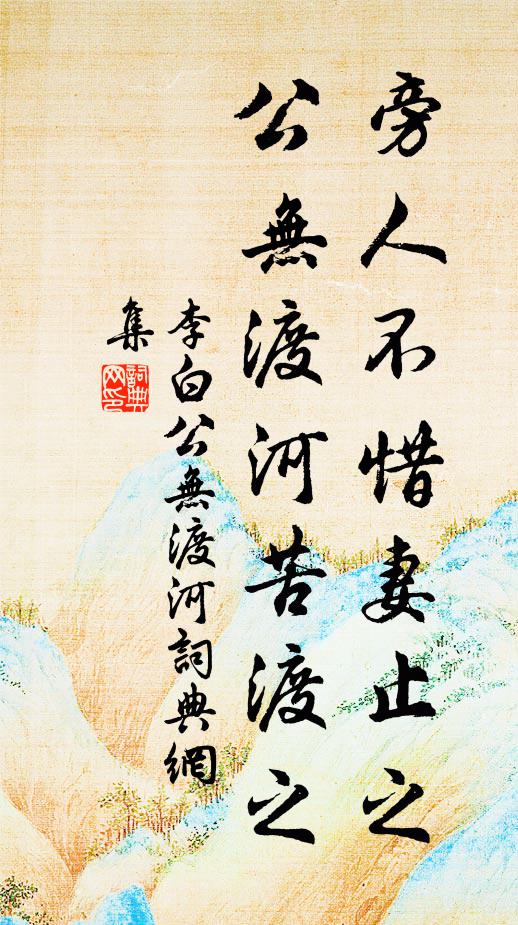 旁人不惜妻止之
公無渡河苦渡之
李白公無渡河詞典網
集
詞典
网印